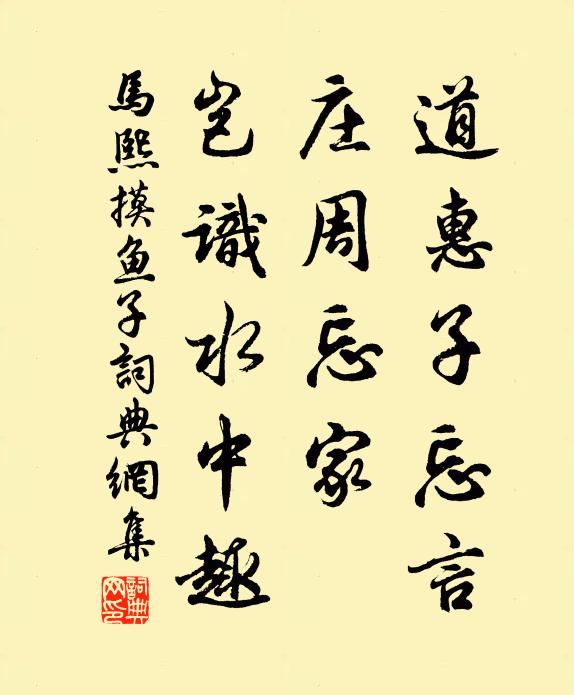 道惠子忘言
庄周忘家
岂識水中趣
馬熙摸鱼子詞典網集
詞典网印